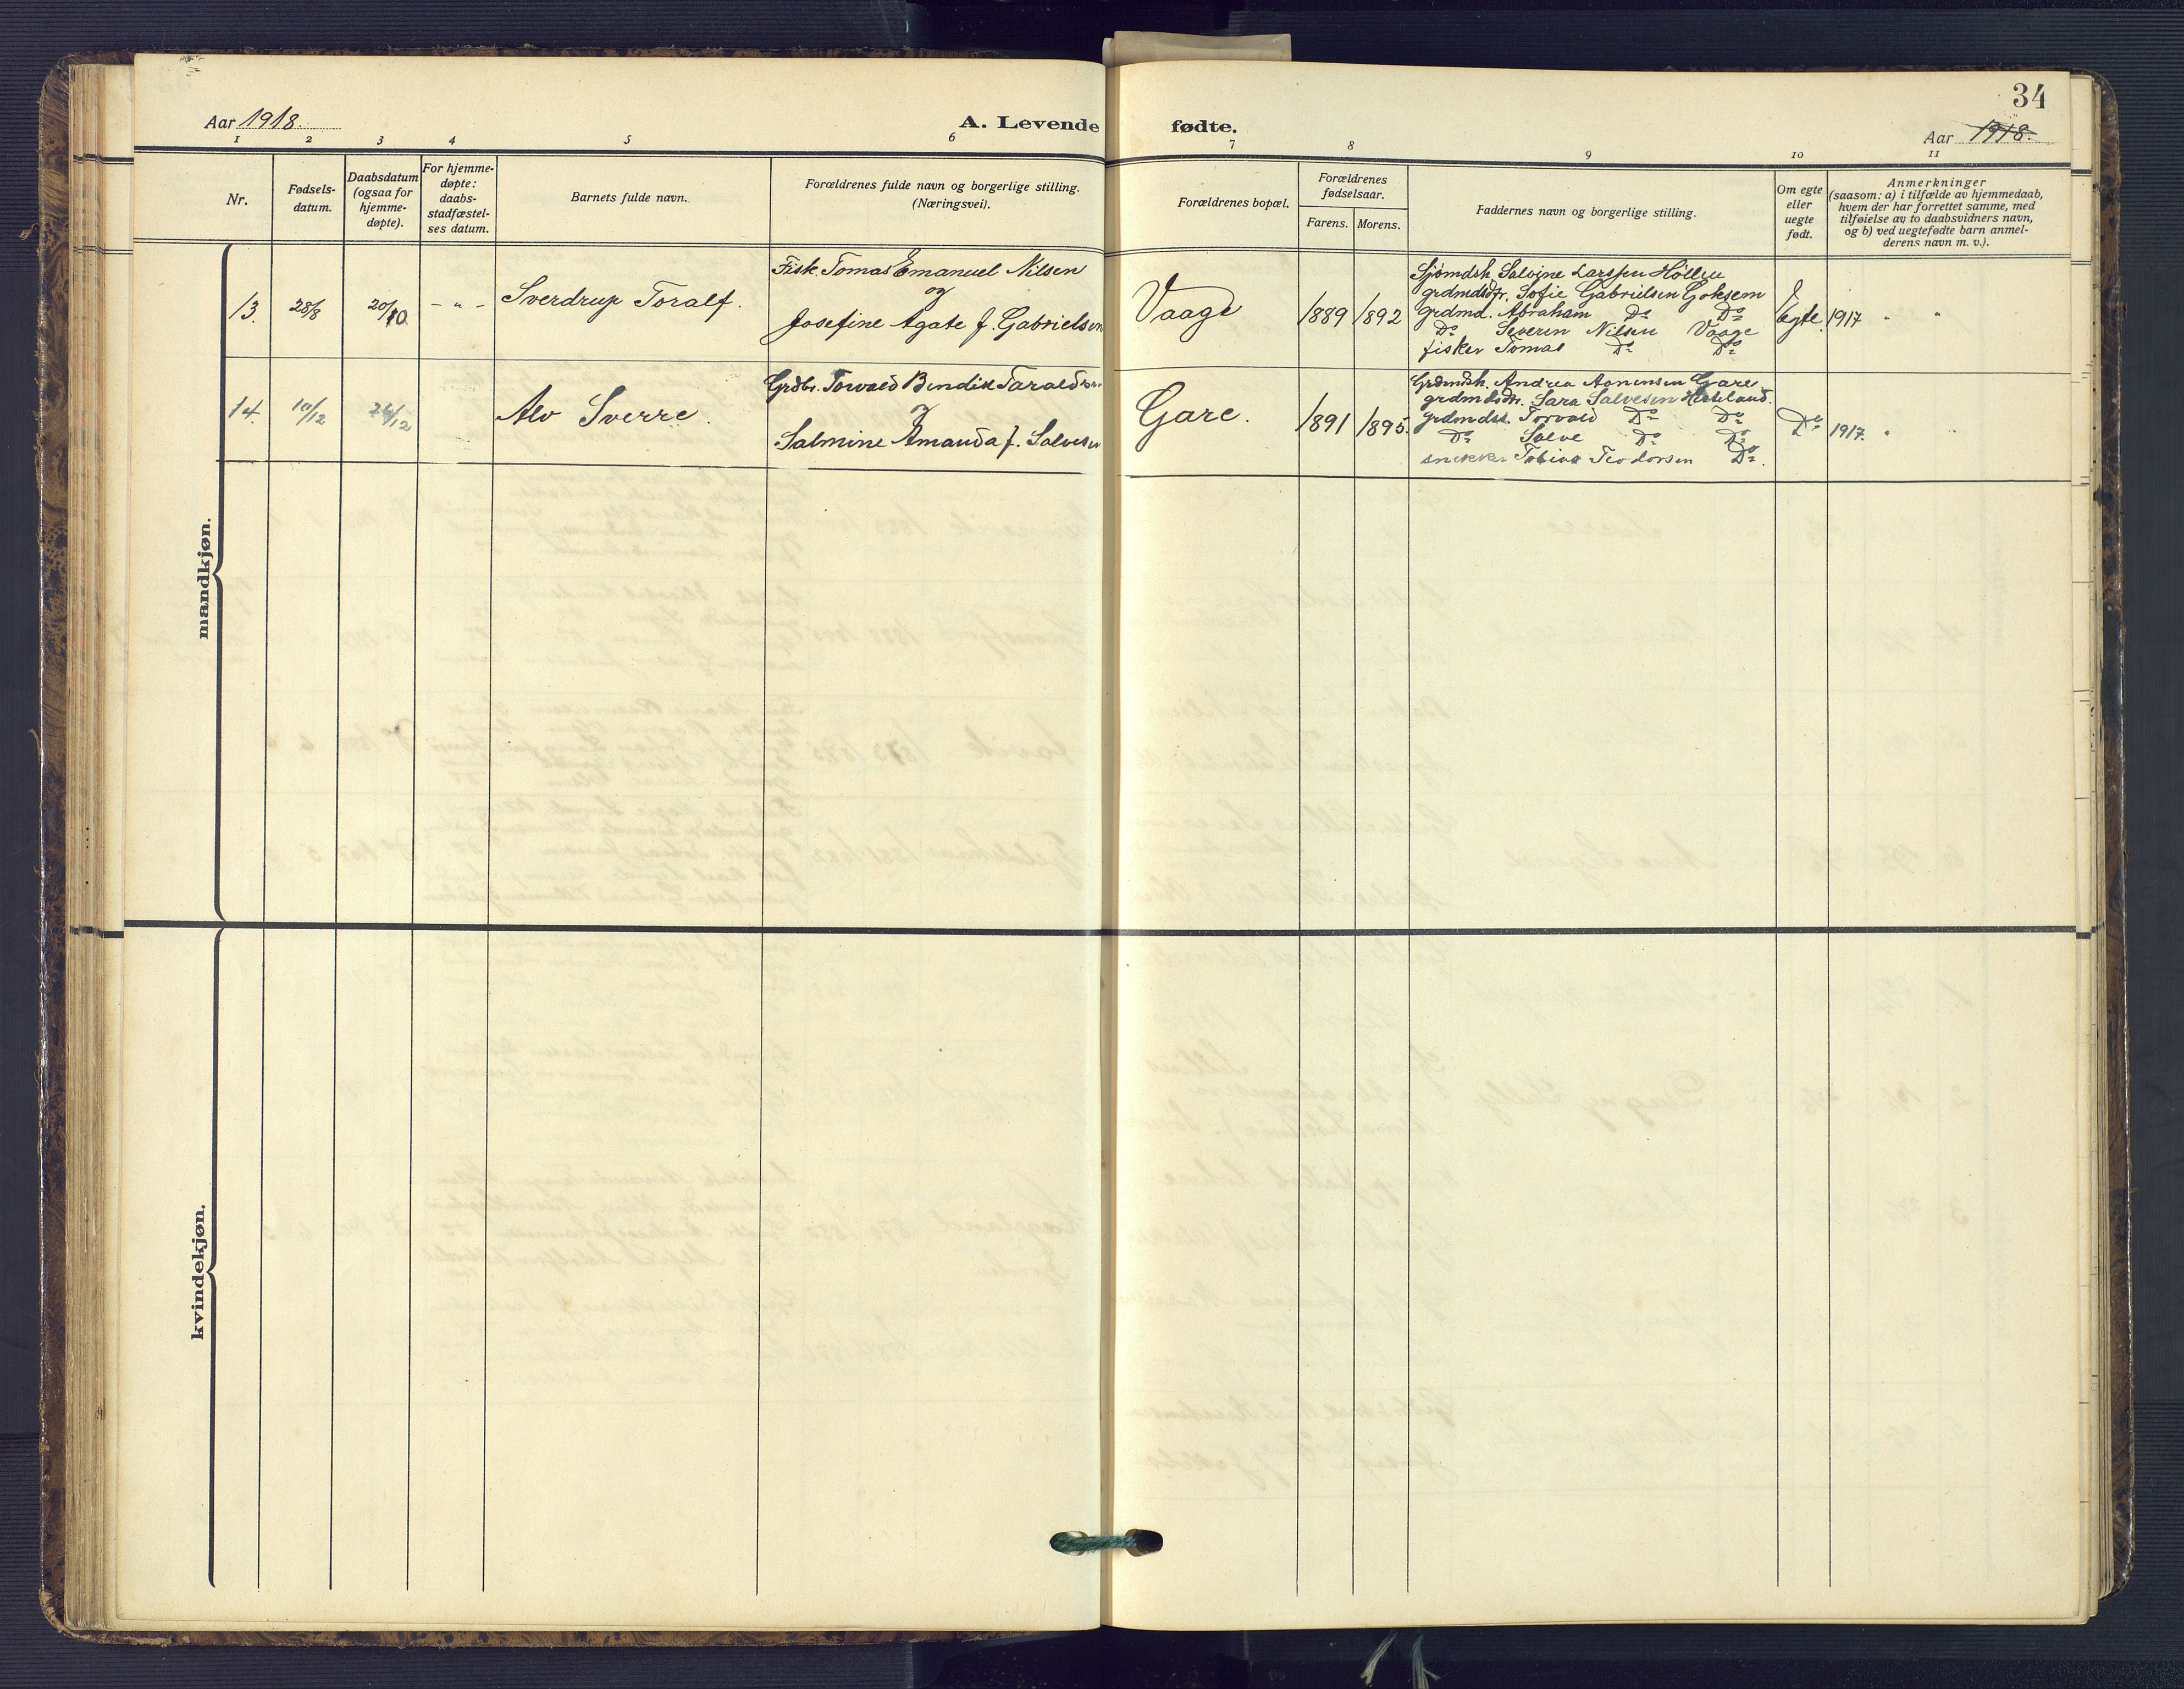 34
Aar 1918.
A. Levende fødte.
Aar 1918.
1 2 3 4 5 6 7 8 9 10 11
Nr.
Fødsels-
datum.
Daabsdatum
(ogsaa for
hjemme-
døpte).
For hjemme-
døpte:
daabs-
stadfæstel-
ses datum.
Barnets fulde navn.
Forældrenes fulde navn og borgerlige stilling.
(Næringsvei).
Forældrenes bopæl.
Forældrenes
fødselsaar.
Farens. Morens.
Faddernes navn og borgerlige stilling.
Om egte
eller
uegte
født.
Anmerkninger
(saasom: a) i tilfælde av hjemmedaab,
hvem der har forrettet samme, med
tilføielse av to daabsvidners navn,
og b) ved uegtefødte barn anmel-
derens navn m. v.).
mandkjøn.
13.
28/8
20/10
- " -
Sverdrup Toralf.
Fisk. Tomas Emanuel Nilsen
og
Josefine Agate f. Gabrielsen
Vaage
1889
1892
Sjömdsh. Salvine Larssen Höllen
grdmdsdtr. Sofie Gabrielsen Goksem
grdmd. Abraham Do Do
Do Severin Nilsen Vaage
fisker Tomas Do Do
Egte.
1917 " "
14.
10/12
26/12
Alv Sverre.
Grdbr. Torvald Bendik Taraldsen
og
Salmine Amanda f. Salvesen
Gare.
1891
1895.
Grdmdsh. Andrea Aanensen Gare
grdmdsdtr. Sara Salvesen
grdmdss. Torvald Do Do
Do Salve Do Do
snekker Tobias Teodorsen Do.
Do
1917. " "
kvindekjøn.